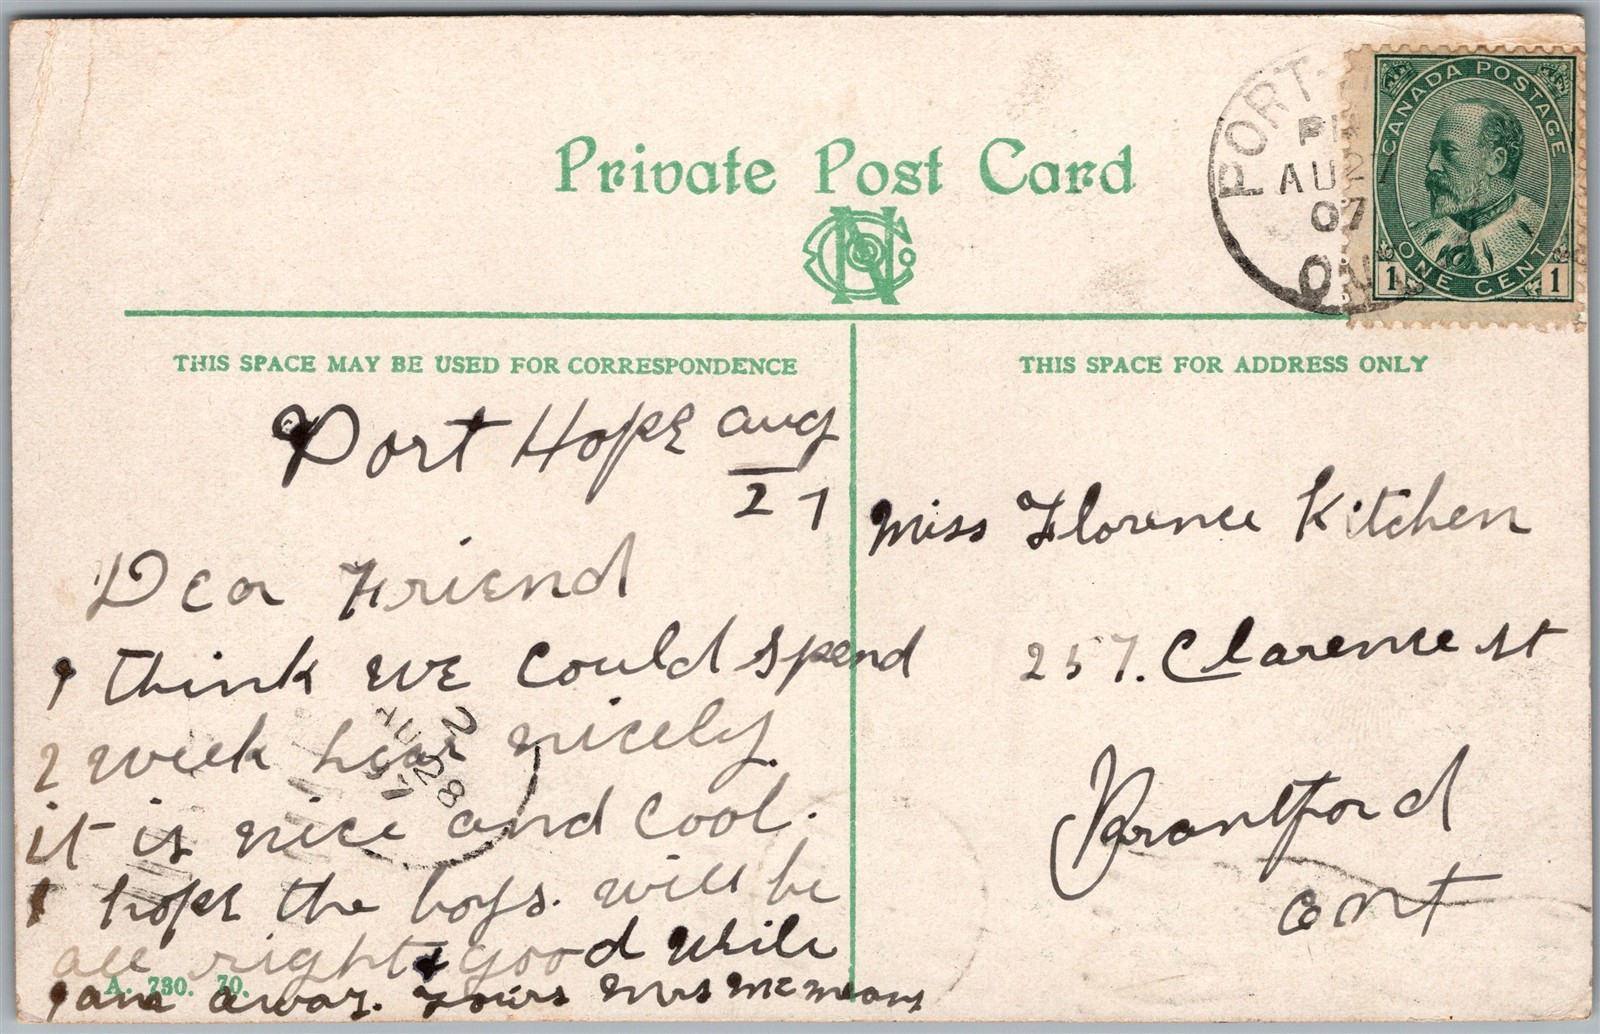 Private Post Card
CANADA POSTAGE
1 ONE CENT 1
PORT
PM
AU 27
07
ON
THIS SPACE MAY BE USED FOR CORRESPONDENCE
Port Hope Aug
27
Dear Friend
I think we could spend
2 week hear nicely.
it is nice and cool.
I hope the boys. will be
all right & good while
I am away. Yours Mrs
A. 730. 70.
THIS SPACE FOR ADDRESS ONLY
Miss Florence Kitchen
257. Clarence st
Brantford
Ont